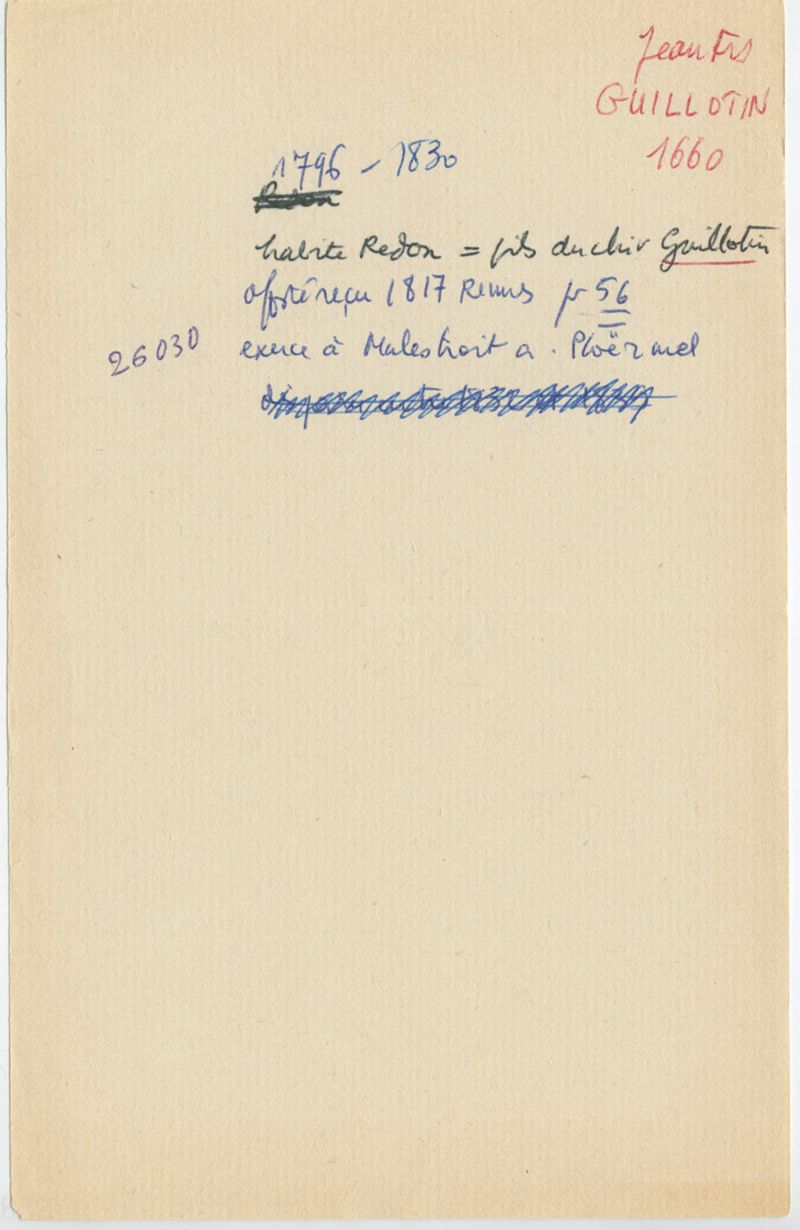 Jean Frs
GUILLOTIN
1660
1796 - 1830
Redon
habite Redon = fils du chir Guillotin
offsté reçu 1817 Rennes pr 56
26030
exerce à Malestroit a. Ploërmel